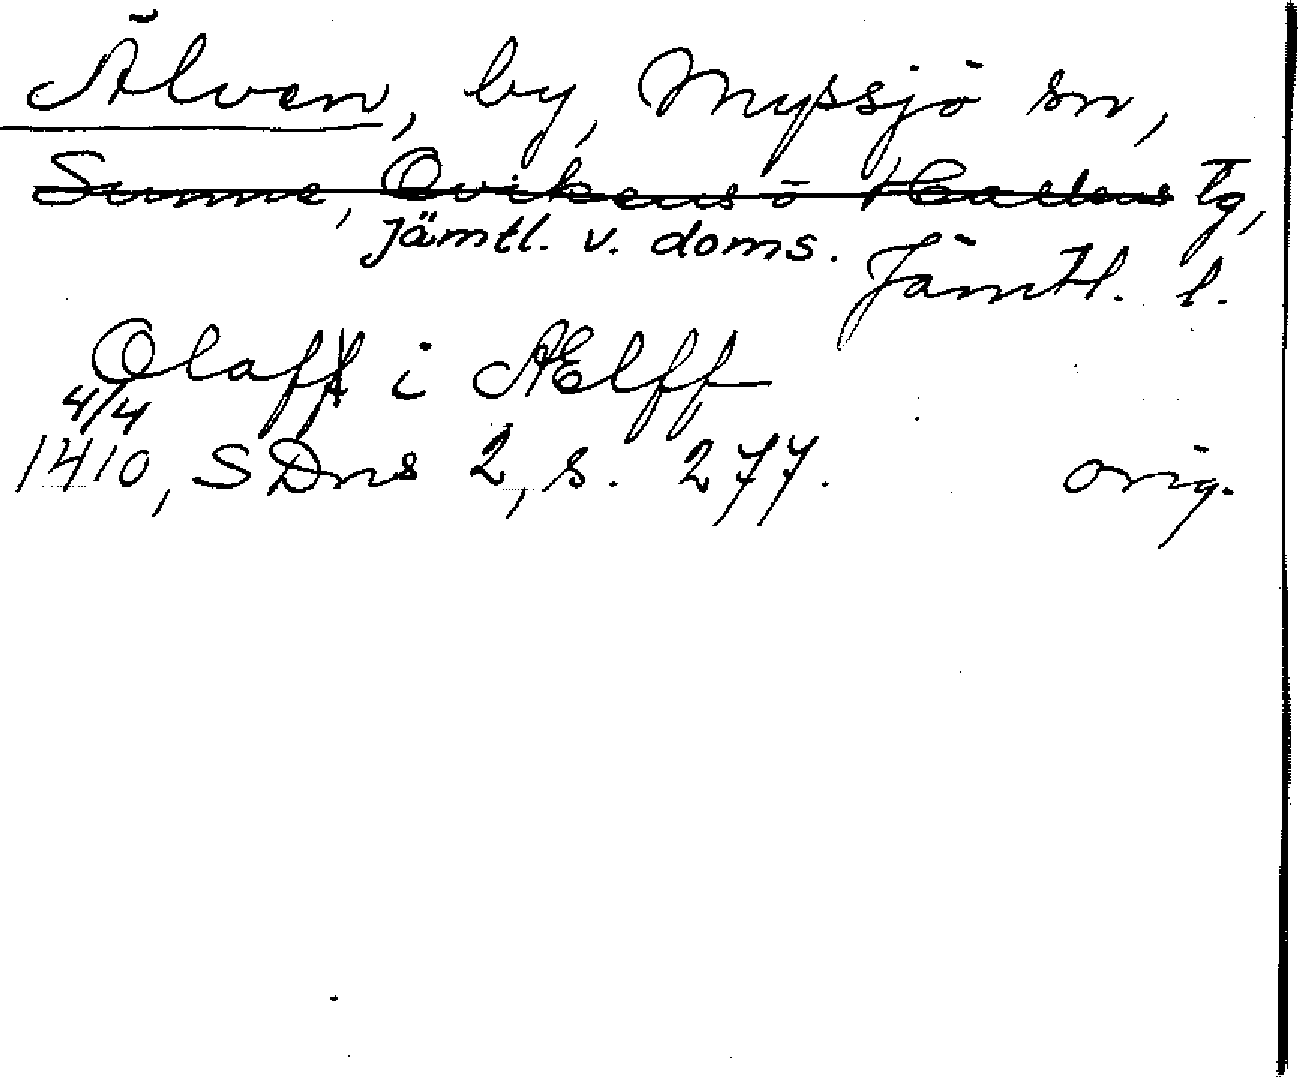 Älven, by, Myssjö sn,
Sunne, Ovikens o Hallens Tg,
Jämtl. v. doms.
Jämtl. l.
Olaff i Ælff
4/4
1410, SDns 2, s. 277. orig.